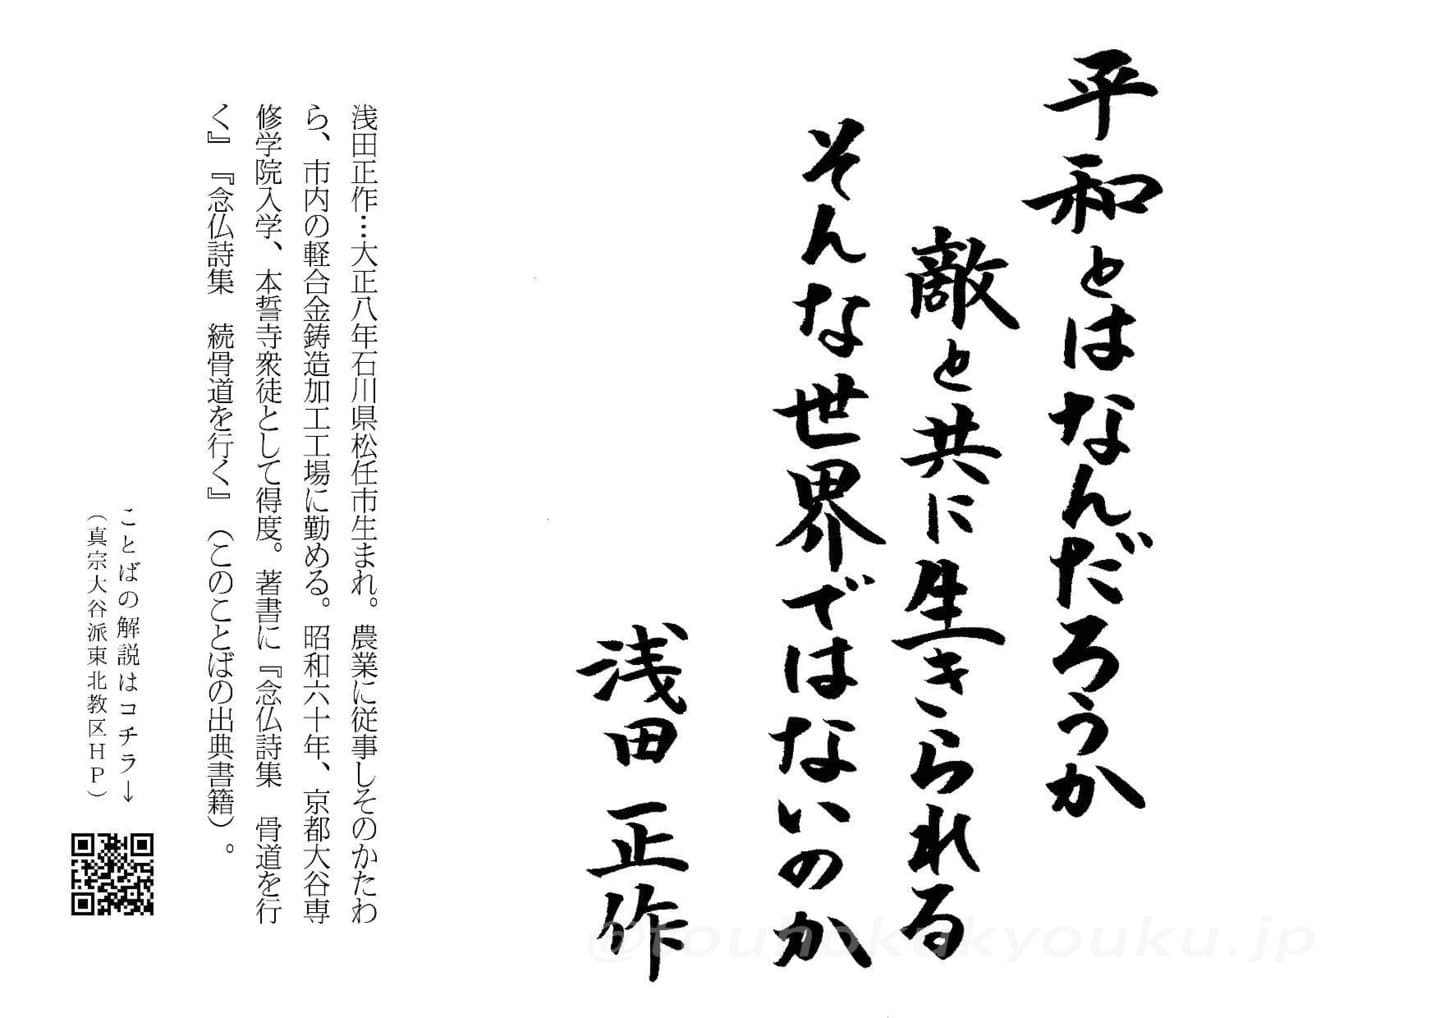 平和とはなんだろうか
敵と共に生きられる
そんな世界ではないのか
浅田正作
浅田正作…大正八年石川県松任市生まれ。農業に従事しそのかたわ
ら、市内の軽合金鋳造加工工場に勤める。昭和六十年、京都大谷専
修学院入学、本誓寺衆徒として得度。著書に『念仏詩集　骨道を行
く』『念仏詩集　続骨道を行く』（このことばの出典書籍）。
ことばの解説はコチラ→
（真宗大谷派東北教区HP）
@touhokukyouku.jp